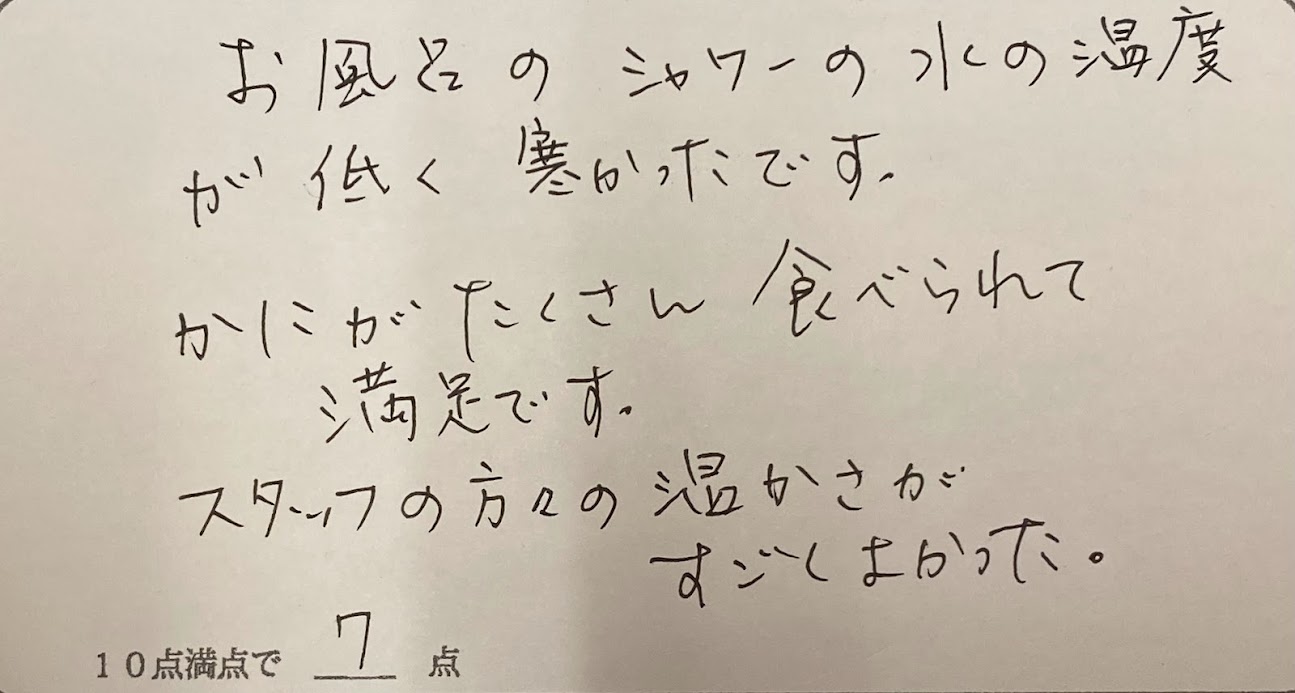 お風呂のシャワーの水の温度
が低く寒かったです.
かにがたくさん食べられて
満足です.
スタッフの方々の温かさが
すごくよかった。
10点満点で 7 点